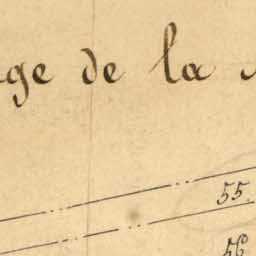 ge de la
55.
56